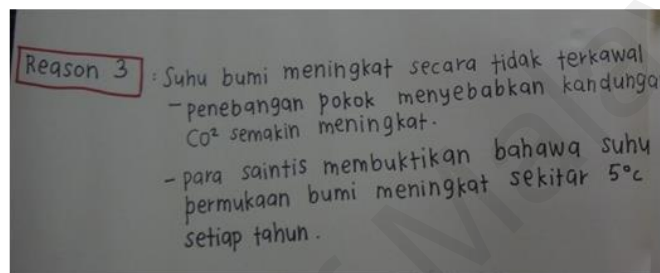 Reason 3 : Suhu bumi meningkat secara tidak terkawal
- penebangan pokok menyebabkan kandunga
CO² semakin meningkat.
- para saintis membuktikan bahawa suhu
permukaan bumi meningkat sekitar 5°c
setiap tahun.